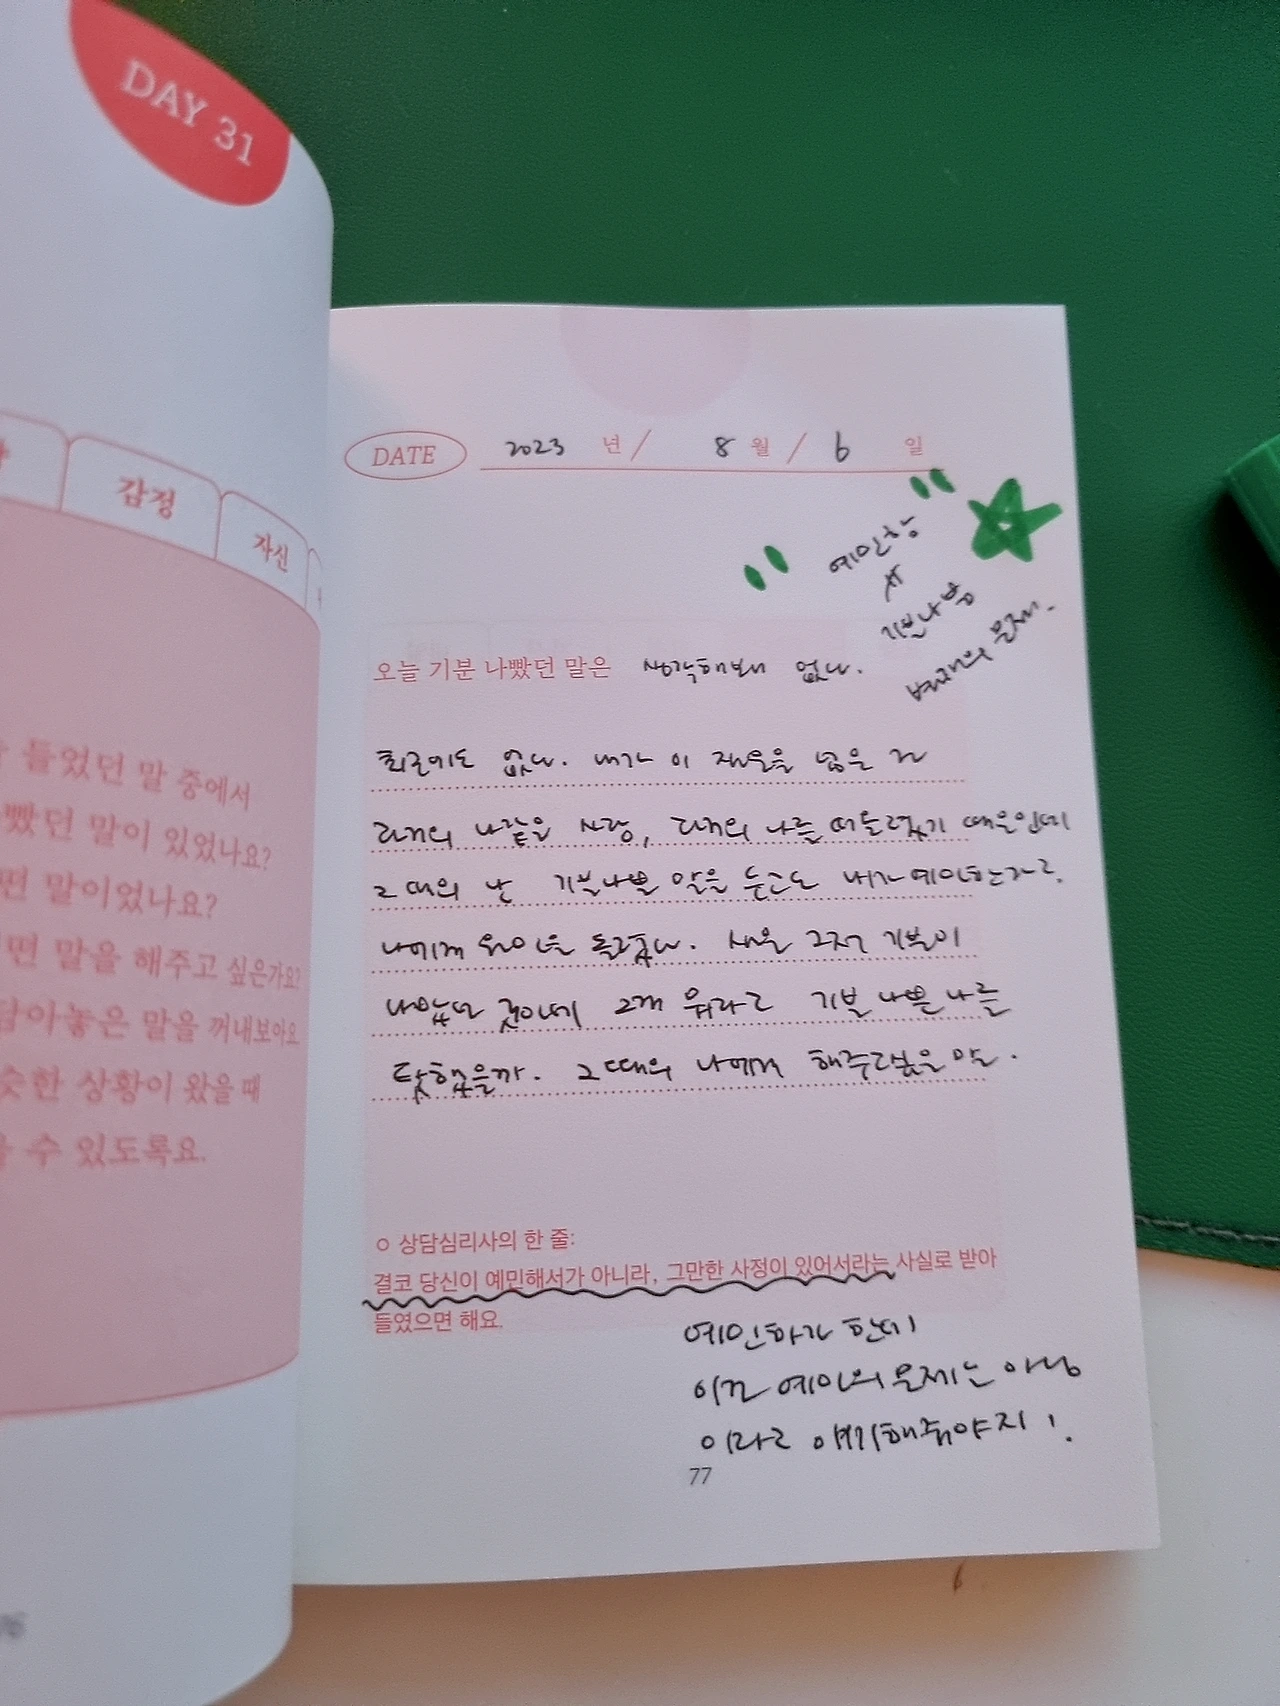 DAY 31
감정
자신
들었던 말 중에서
빴던 말이 있었나요?
떤 말이었나요?
떤 말을 해주고 싶은가요?
담아놓은 말을 꺼내보아요
슷한 상황이 왔을 때
수 있도록요.
DATE 2023 년 / 8 월 / 6 일
" 예민함 "
기분나쁨
별개의 문제.
오늘 기분 나빴던 말은 생각해보니 없다.
최근에도 없다. 내가 이 재운을 넘은 건
과거의 나같은 사람, 과거의 나를 떠올렸기 때문인데
그 때의 난 기분나쁜 말을 듣고도 내가 예민한가?
나에게 원인을 돌렸다. 사실 그저 기분이
나빴던 것인데 그게 뭐라고 기분 나쁜 나를
탓했을까. 그때의 나에게 해주고싶은 말.
상담심리사의 한 줄:
결코 당신이 예민해서가 아니라, 그만한 사정이 있어서라는 사실로 받아
들였으면 해요.
예민하긴 한데
이건 예민의 문제는 아님
이라고 얘기해줘야지!
77